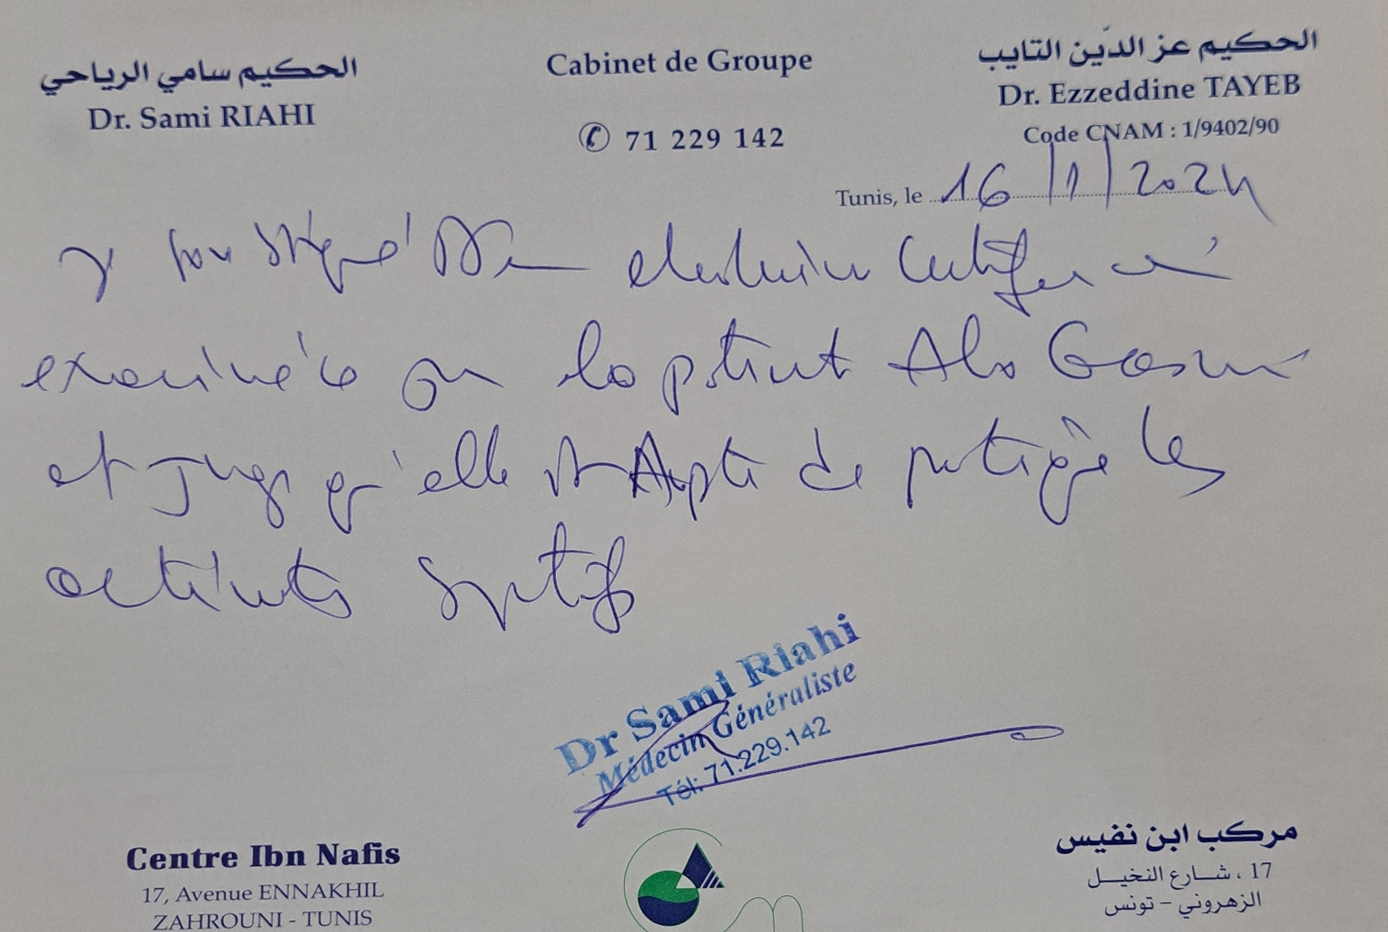 الحكيم سامي الرياحي
Dr. Sami RIAHI
Cabinet de Groupe
✆ 71 229 142
الحكيم عز الدّين التايب
Dr. Ezzeddine TAYEB
Code CNAM : 1/9402/90
Tunis, le 16/1/2024
soussigné Dr certifie
examiné ce la patient Ala
et juge qu'elle est Apte de pratiquer les
activités sportifs
Dr Sami Riahi
Médecin Généraliste
Tél: 71.229.142
Centre Ibn Nafis
17, Avenue ENNAKHIL
ZAHROUNI - TUNIS
مركب ابن نفيس
17 ، شارع النخيل
الزهروني - تونس